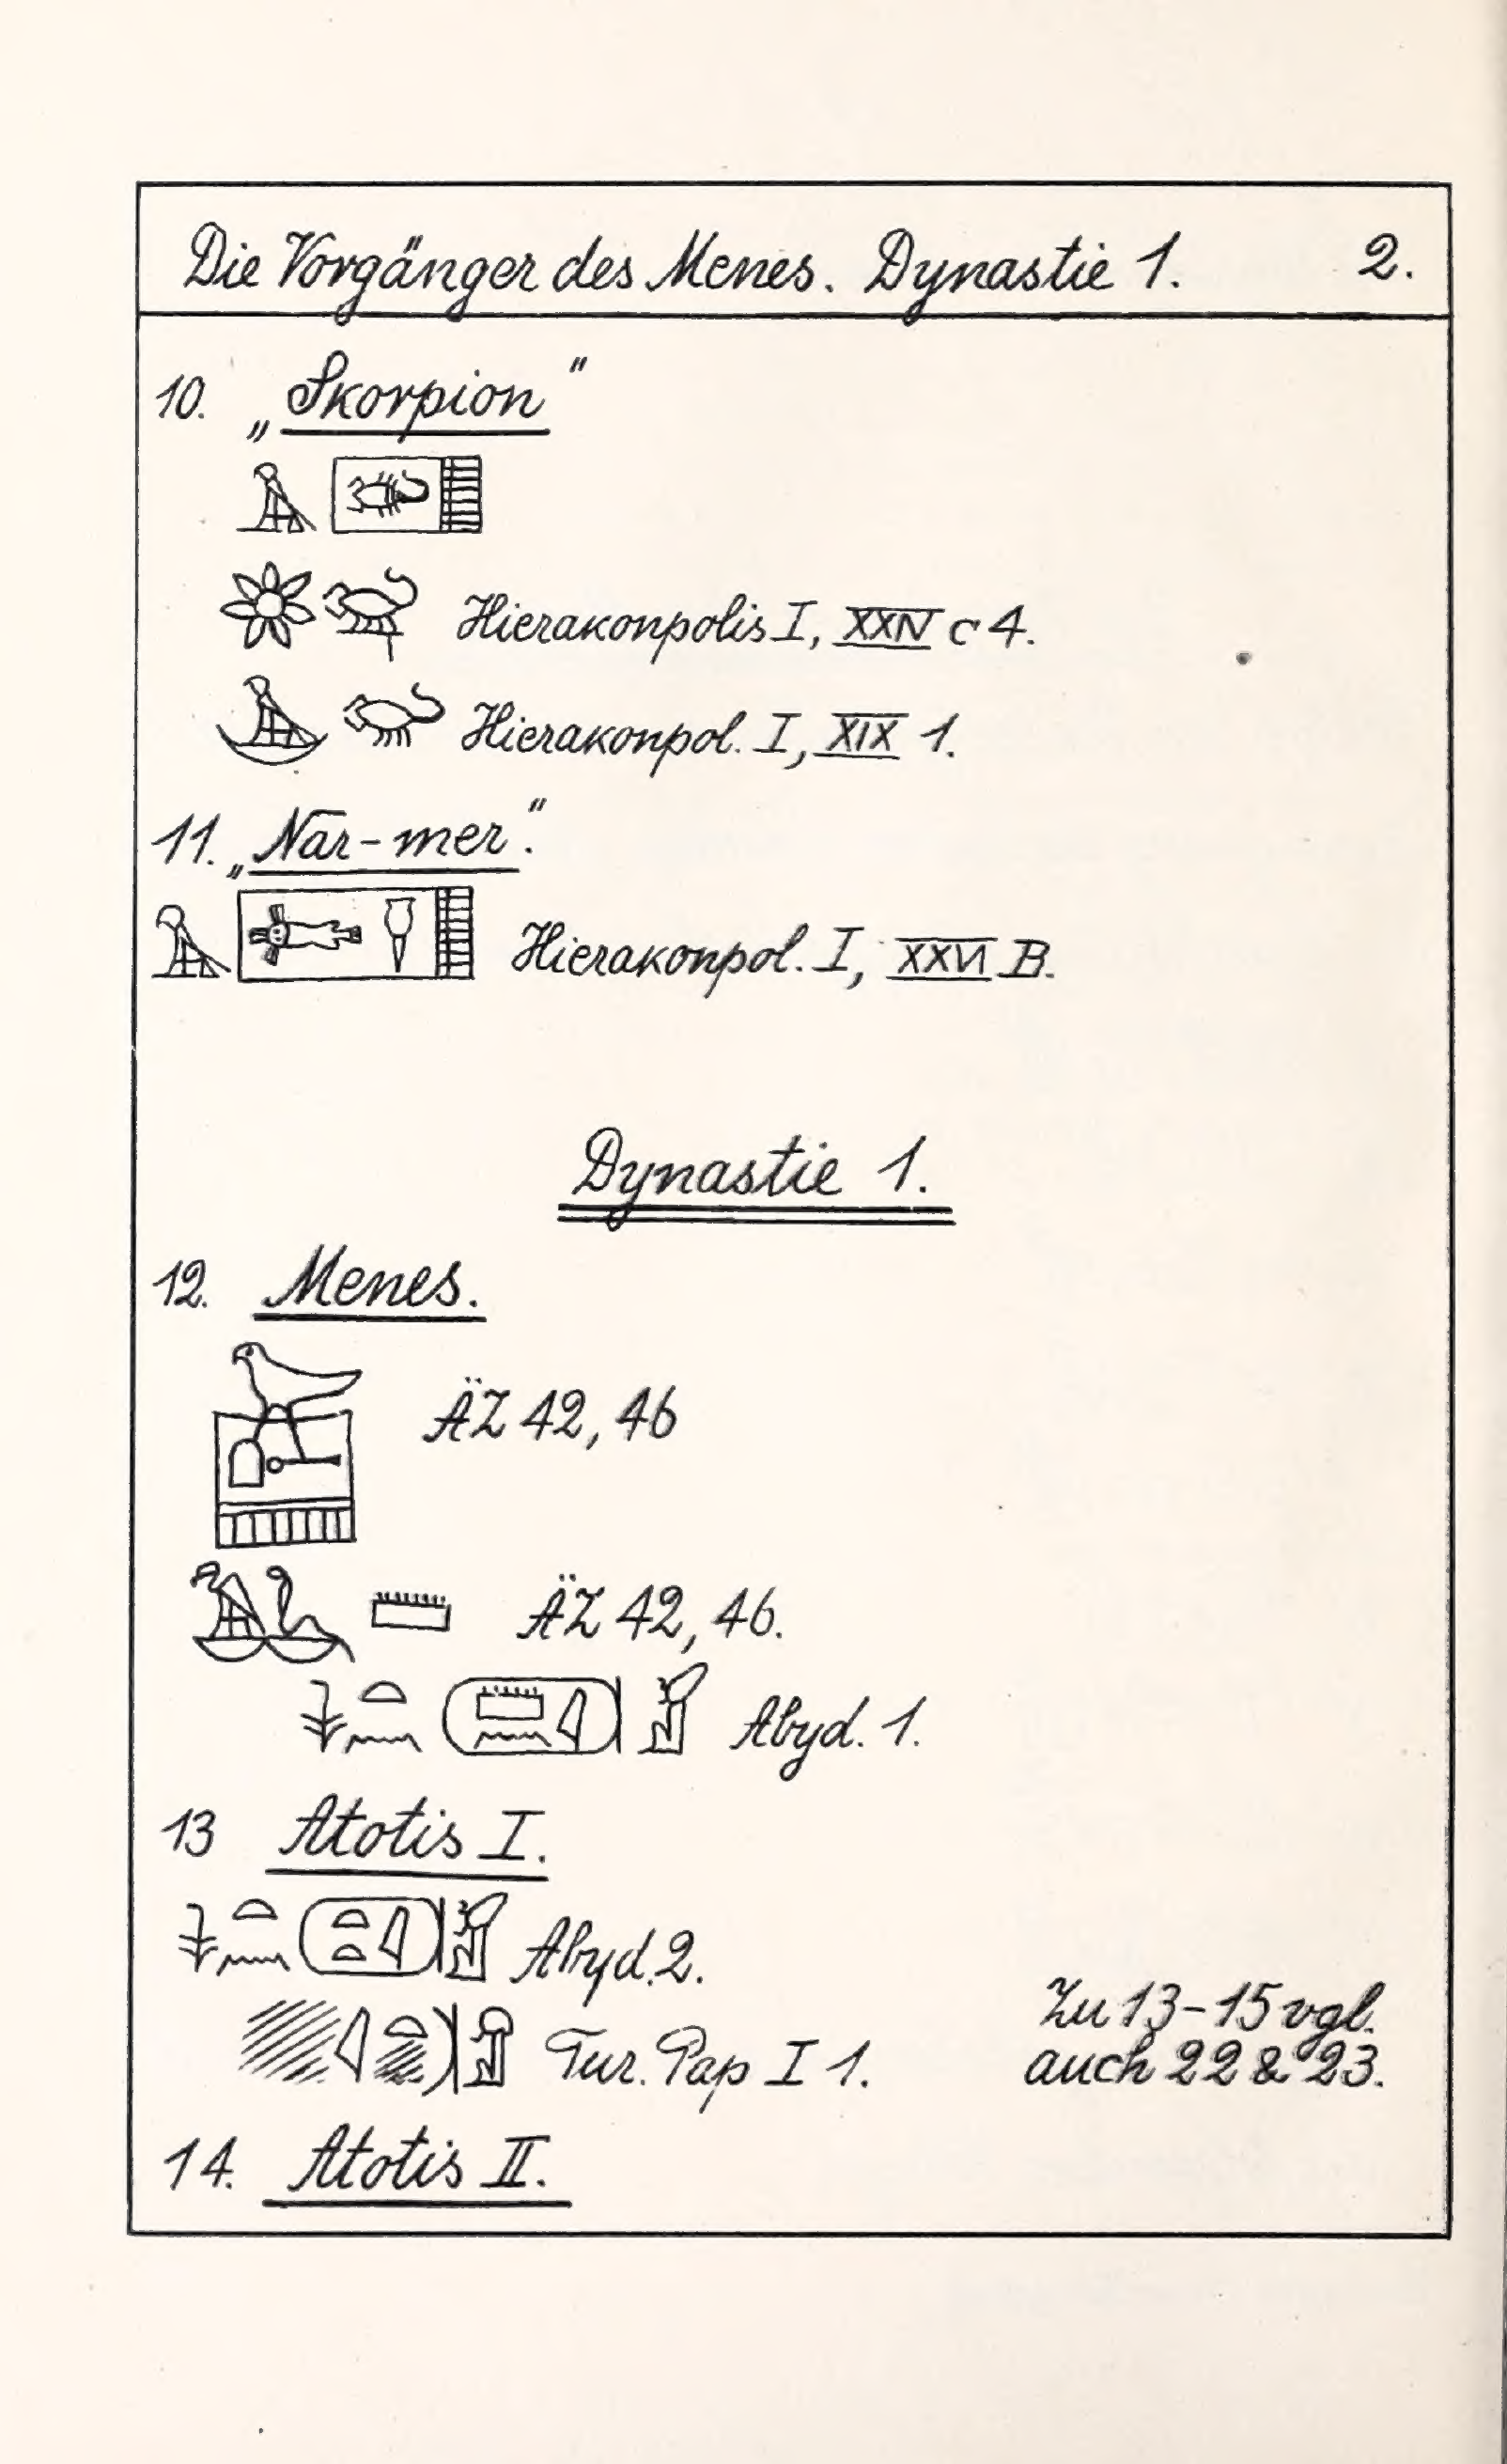 Die Vorgänger des Menes. Dynastie 1. 2.
10. „Skorpion"
Hierakonpolis I, XXIV c 4.
Hierakonpol. I, XIX 1.
11. „Nar-mer".
Hierakonpol. I, XXVI B.
Dynastie 1.
12. Menes.
ÄZ 42, 46
ÄZ 42, 46.
Abyd. 1.
13 Atotis I.
Abyd. 2.
Tur. Pap I 1.
Zu 13-15 vgl.
auch 22 & 23.
14. Atotis II.